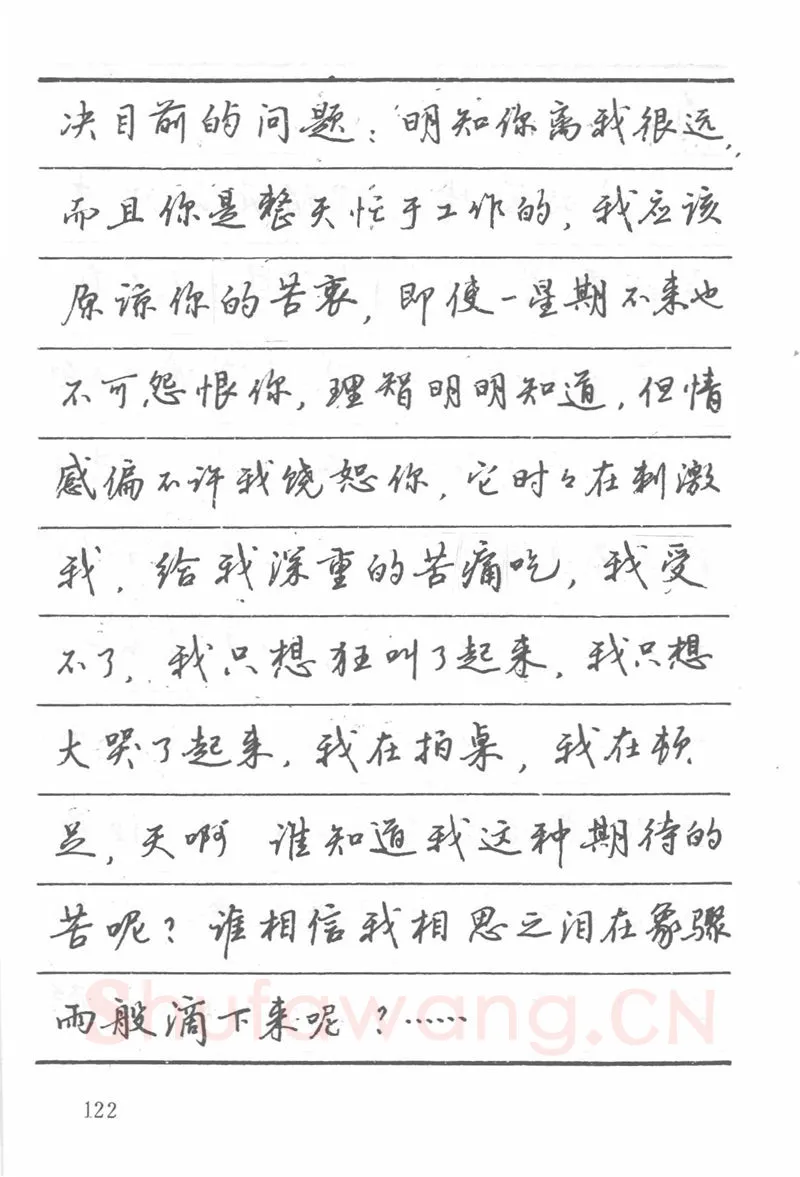 决目前的问题：明知你离我很远，
而且你是整天忙于工作的，我应该
原谅你的苦衷，即使一星期不来也
不可怨恨你，理智明明知道，但情
感偏不许我饶恕你，它时々在刺激
我，给我深重的苦痛吃，我受
不了，我只想狂叫了起来，我只想
大哭了起来，我在拍桌，我在顿
足，天啊 谁知道我这种期待的
苦呢？谁相信我相思之泪在象骤
雨般滴下来呢？……
Shufawang.CN
122